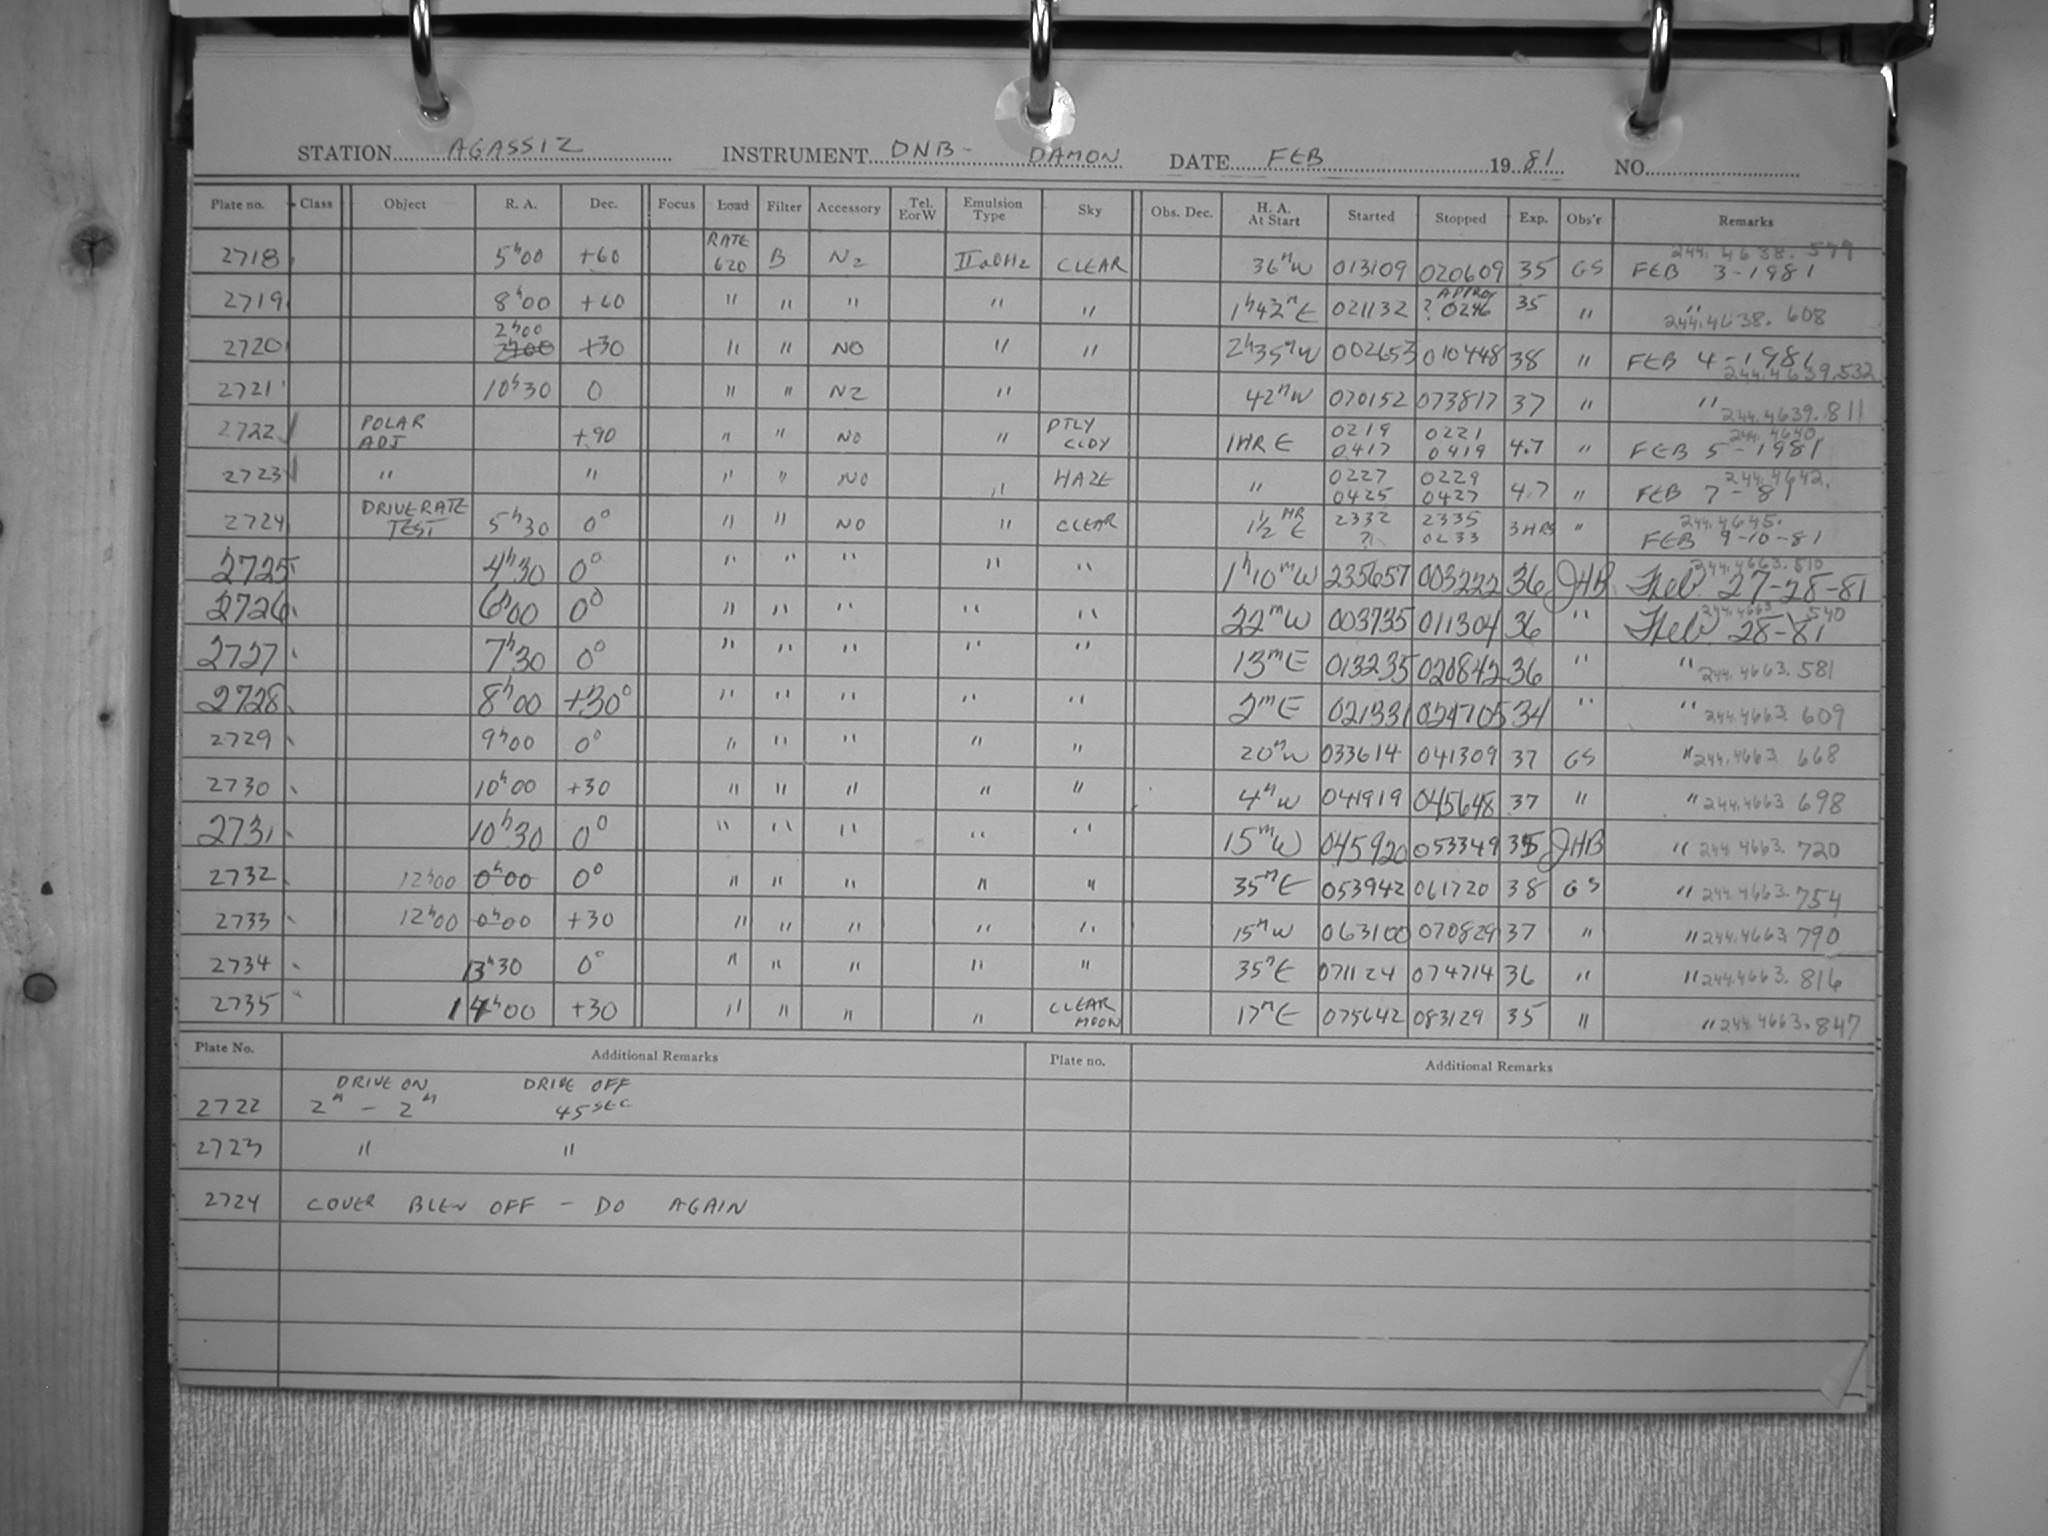 STATION AGASSIZ INSTRUMENT DNB - DAMON DATE FEB 19 81 NO.
Plate no. Class Object R. A. Dec. Focus Load Filter Accessory Tel. E or W Emulsion Type Sky Obs. Dec. H. A. At Start Started Stopped Exp. Obs'r Remarks
2718 5h00 +60 RATE 620 B N2 IIaOH2 CLEAR 36mW 013109 020609 35 GS 244.4638.579 FEB 3-1981
2719 8h00 +60 " " " " " 1h42mE 021132 APPROX ? 0246 35 " " 244.4638.608
2720 2h00 +30 " " NO " " 2h35mW 002653 010448 38 " FEB 4-1981 244.4639.532
2721 10h30 0 " " N2 " 42mW 070152 073817 37 " " 244.4639.811
2722 POLAR ADJ +90 " " NO " PTLY CLDY 1HR E 0219 0417 0221 0419 4.7 " 244.4640. FEB 5-1981
2723 " " " " NO " HAZE " 0227 0425 0229 0427 4.7 " 244.4642. FEB 7-81
2724 DRIVE RATE TEST 5h30 0° " " NO " CLEAR 1½ HR E 2332 ? 2335 0233 3HRS " 244.4645. FEB 9-10-81
2725 4h30 0° " " " " " 1h10mW 235657 003222 36 JHB 244.4663.510 Feb 27-28-81
2726 6h00 0° " " " " " 22mW 003735 011304 36 " 244.4663.540 Feb 28-81
2727 7h30 0° " " " " " 13mE 013235 020842 36 " " 244.4663.581
2728 8h00 +30° " " " " " 2mE 021331 024705 34 " " 244.4663.609
2729 9h00 0° " " " " " 20mW 033614 041309 37 GS " 244.4663.668
2730 10h00 +30 " " " " " 4mW 041919 045648 37 " " 244.4663.698
2731 10h30 0° " " " " " 15mW 045920 053349 35 JHB " 244.4663.720
2732 12h00 0h00 0° " " " " " 35mE 053942 061720 38 GS " 244.4663.754
2733 12h00 0h00 +30 " " " " " 15mW 063100 070829 37 " " 244.4663.790
2734 13h30 0° " " " " " 35mE 071124 074714 36 " " 244.4663.816
2735 14h00 +30 " " " " CLEAR MOON 17mE 075642 083129 35 " " 244.4663.847
Plate No. Additional Remarks Plate no. Additional Remarks
DRIVE ON DRIVE OFF
2722 2m - 2m 45 SEC
2723 " "
2724 COVER BLEW OFF - DO AGAIN